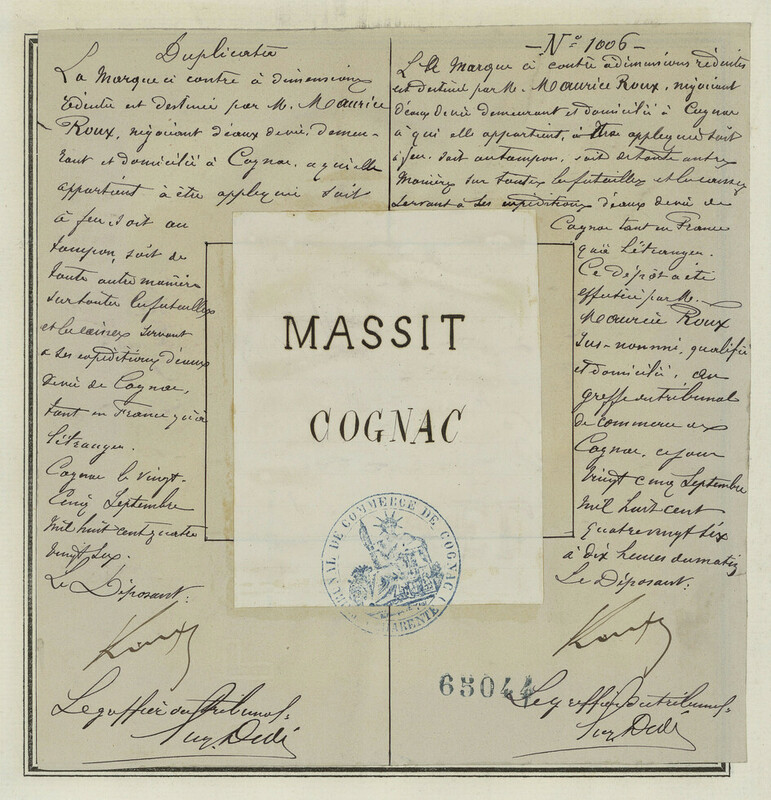 Duplicata
La Marque ci contre à dimensions
réduites est destinée par M. Maurice
Roux, négociant d'eaux de vie, demeu-
rant et domicilié à Cognac, a qui elle
appartient à être appliquée soit
à feu, soit au
tampon, soit de
toute autre manière
sur toutes les futailles
et les caisses servant
a ses expéditions d'eaux
de vie de Cognac,
tant en France qu'à
l'étranger.
Cognac le vingt-
cinq Septembre
mil huit cent quatre
vingt six.
Le Déposant:
Roux
Le greffier du tribunal,
Dedé
- No 1006 -
La Marque ci contre à dimensions réduites
est destinée par M. Maurice Roux, négociant
d'eaux de vie demeurant et domicilié à Cognac
a qui elle appartient, à être appliquée soit
à feu, soit au tampon, soit de toute autre
Manière sur toutes les futailles et les caisses
servant à ses expéditions d'eaux de vie de
Cognac tant en France
qu'à l'étranger.
Ce dépôt a été
effectué par M.
Maurice Roux
sus-nommé, qualifié
et domicilié, au
greffe du tribunal
de commerce de
Cognac, ce jour
vingt cinq Septembre
mil huit cent
quatre vingt six
à dix heures du matin
Le Déposant:
Roux
Le greffier du tribunal,
Dedé
MASSIT
COGNAC
TRIBUNAL DE COMMERCE DE COGNAC
CHARENTE
65044